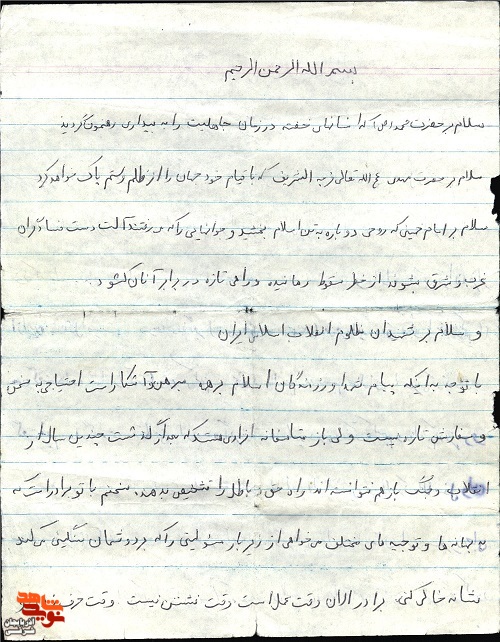 بسم الله الرحمن الرحیم
سلام بر حضرت محمد (ص) که انسانهای خفته در زمان جاهلیت را به بیداری رهنمون گردید
سلام بر حضرت مهدی عج الله تعالی فرجه الشریف که با قیام خود جهان را از ظلم و ستم پاک خواهد کرد
سلام بر امام خمینی که روحی دوباره به تن اسلام بخشید و جوانانی را که میرفتند آلت دست فسادگران
غرب و شرق بشوند از خطر سقوط رهانیده و راهی تازه در برابر آنان گشود.
و سلام بر شهیدان مظلوم انقلاب اسلامی ایران
با توجه به اینکه پیام شهدا و رزمندگان اسلام برهمه مبرهن و آشکار است احتیاجی به
و سفارش تازه نیست ولی باز متاسفانه افرادی هستند که بعد از گذشت چندین سال از
انقلاب و جنگ باز هم نتوانسته اند راه حق و باطل را تشخیص بدهند. سخنم با تو برادر است که
به بهانه ها و توجیه های مختلف می خواهی از زیر بار مسئولیتی را که بر دوشمان سنگینی می کند
شانه خالی کنی. برادر الان وقت عمل است وقت نشستن نیست. وقت حرف
نوید شاهد
آذربایجان شرقی